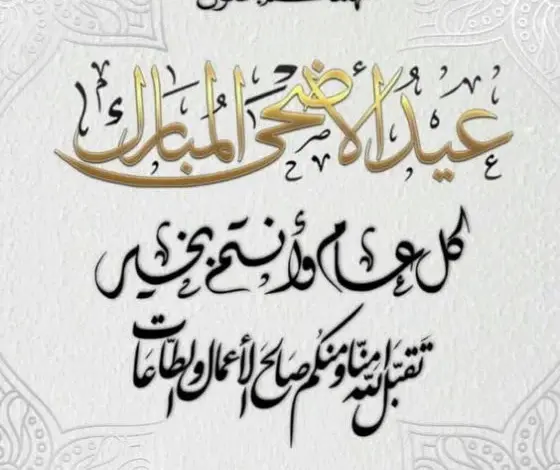 عيد الأضحى المبارك
كل عام وأنتم بخير
تقبّل الله منّا ومنكم صالح الأعمال والطّاعات